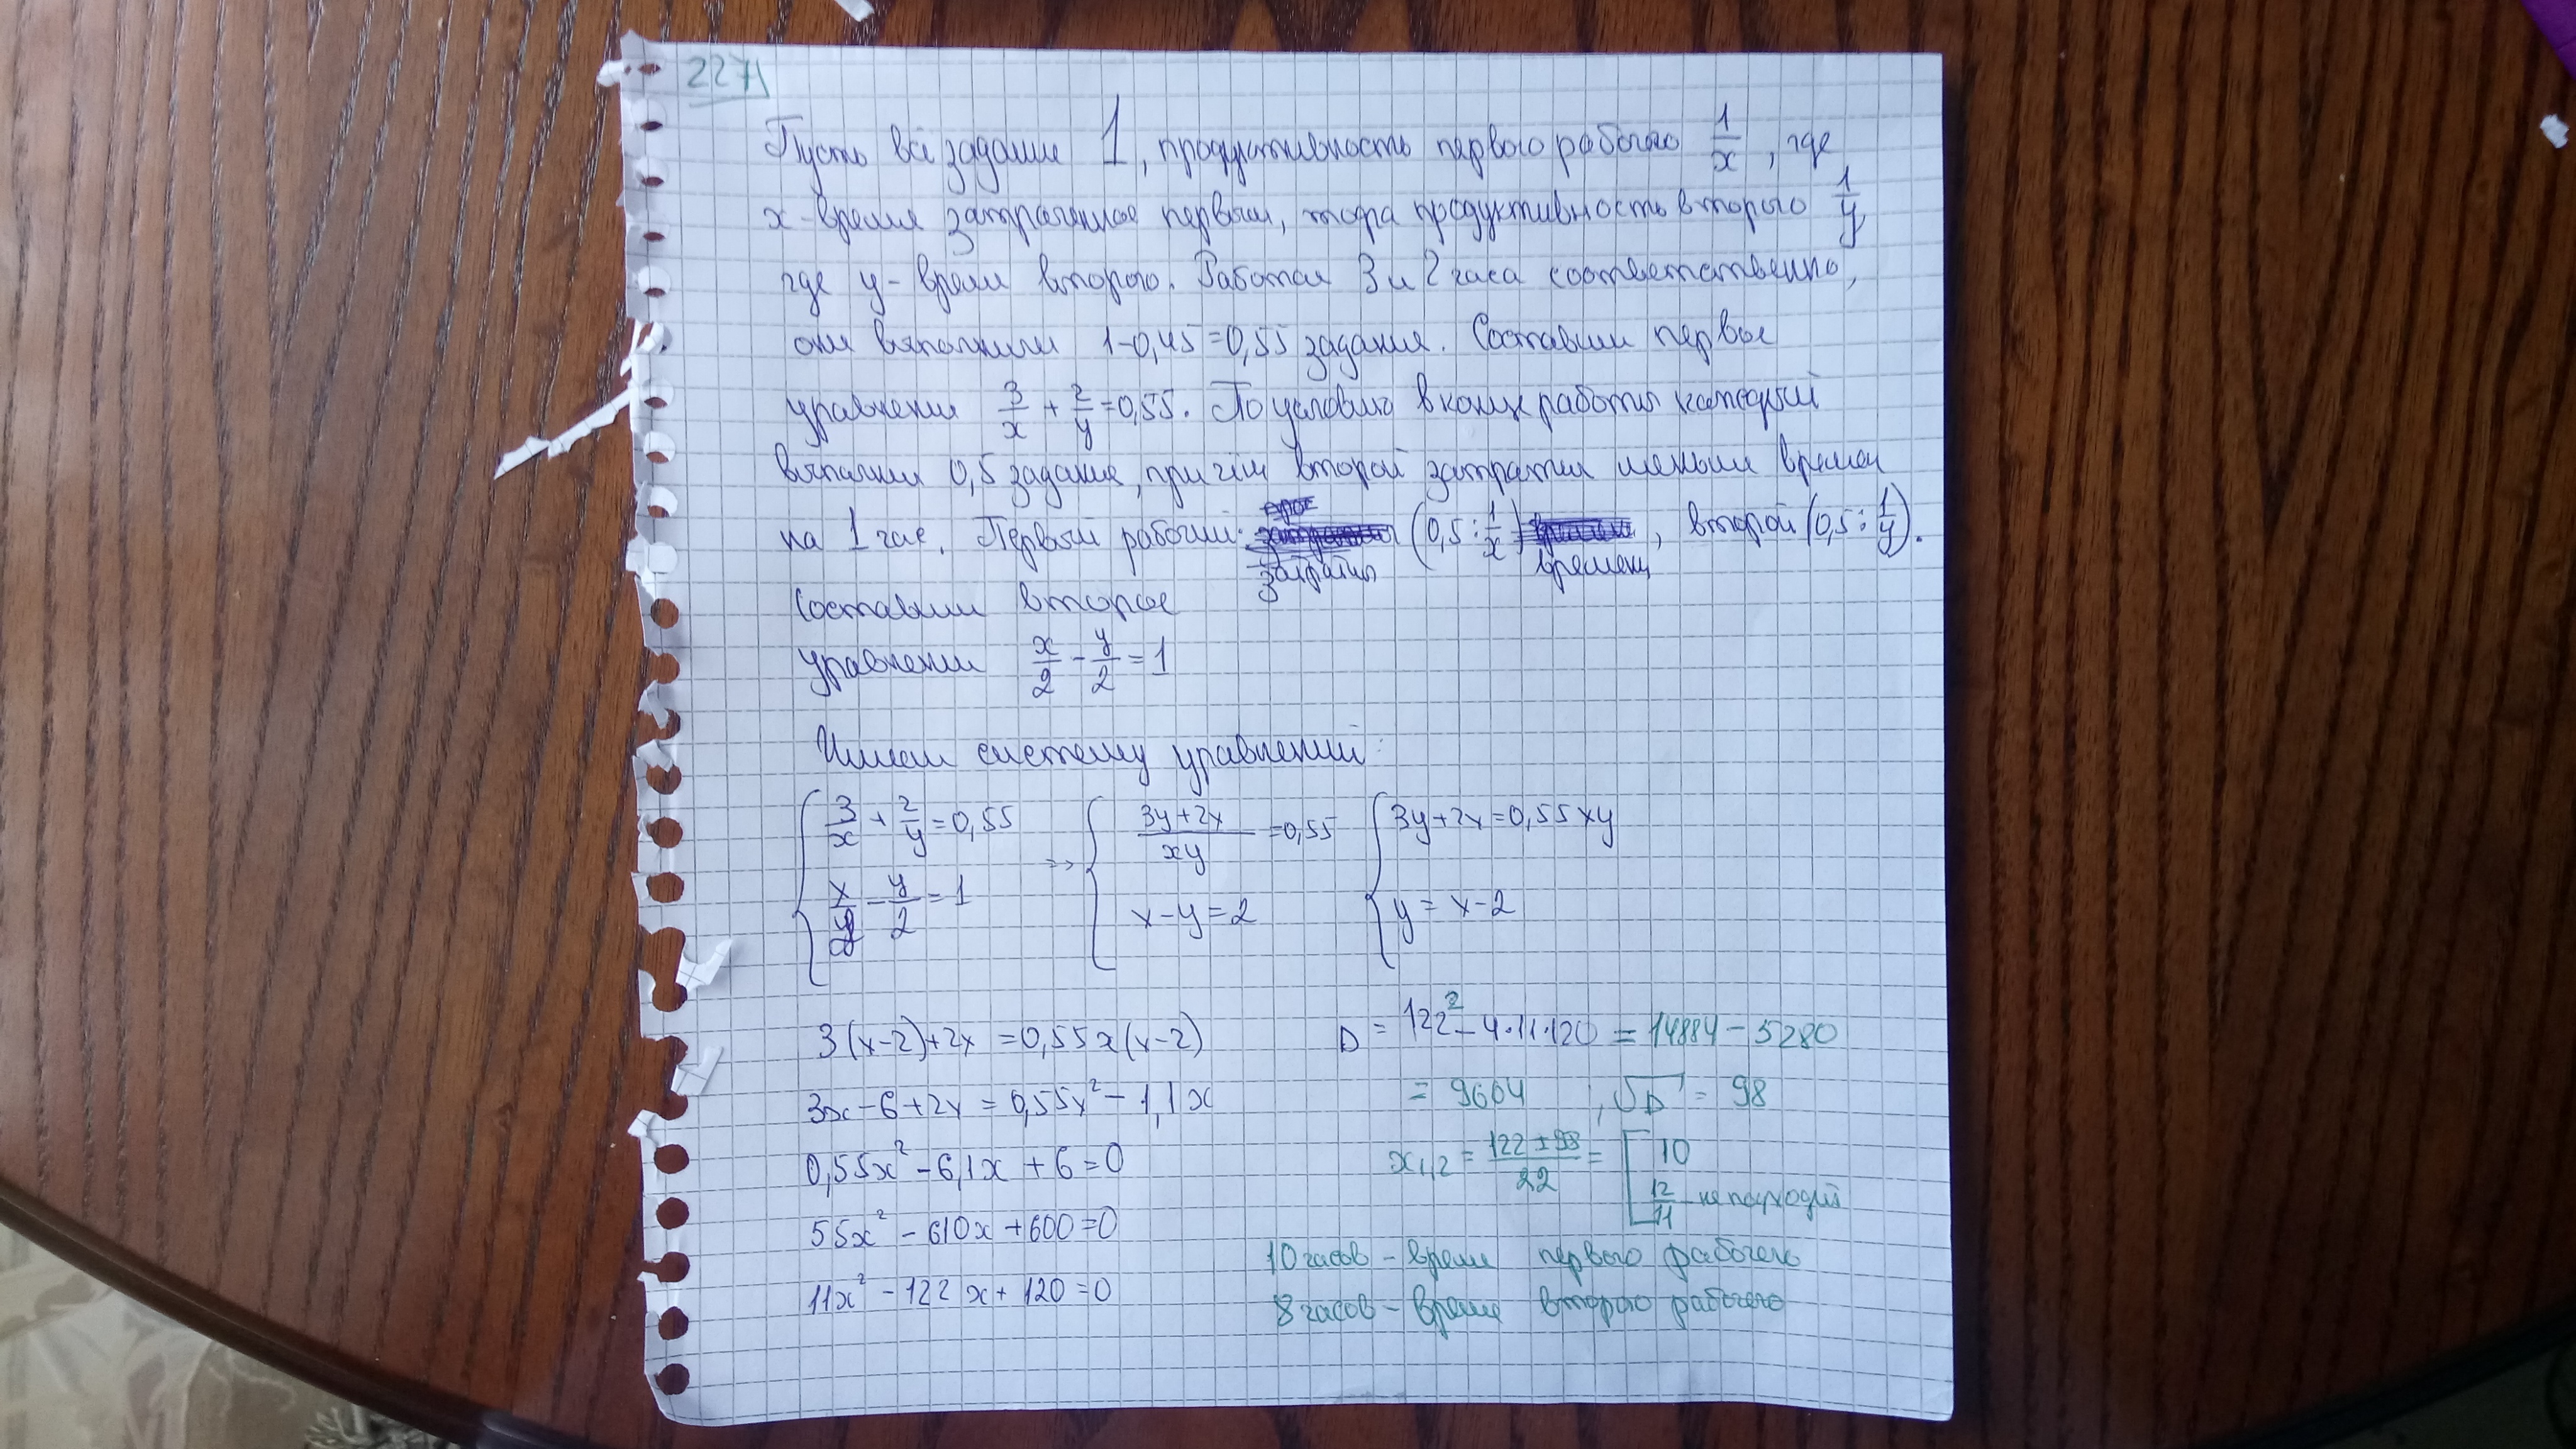 2271
Пусть всё задание 1, продуктивность первого рабочего 1/x, где
x - время затраченное первым, тогда продуктивность второго 1/y
где y - время второго. Работая 3 и 2 часа соответственно,
они выполнили 1-0,45=0,55 задания. Составим первое
уравнение 3/x + 2/y = 0,55. По условию в конце работы каждый
выполнил 0,5 задания, причём второй затратил меньше времени
на 1 час. Первый рабочий затратил (0,5 : 1/x) времени, второй (0,5 : 1/y).
Составим второе
уравнение x/2 - y/2 = 1
Имеем систему уравнений:
{ 3/x + 2/y = 0,55 => { (3y+2x)/xy = 0,55 { 3y+2x=0,55xy
x/2 - y/2 = 1 x-y=2 y = x-2
3(x-2)+2x = 0,55x(x-2)
3x-6+2x = 0,55x² - 1,1x
0,55x² - 6,1x + 6 = 0
55x² - 610x + 600 = 0
11x² - 122x + 120 = 0
D = 122² - 4·11·120 = 14884 - 5280
= 9604 ; √D = 98
x1,2 = (122 ± 98)/22 = [ 10
12/11 не подходит
10 часов - время первого рабочего
8 часов - время второго рабочего